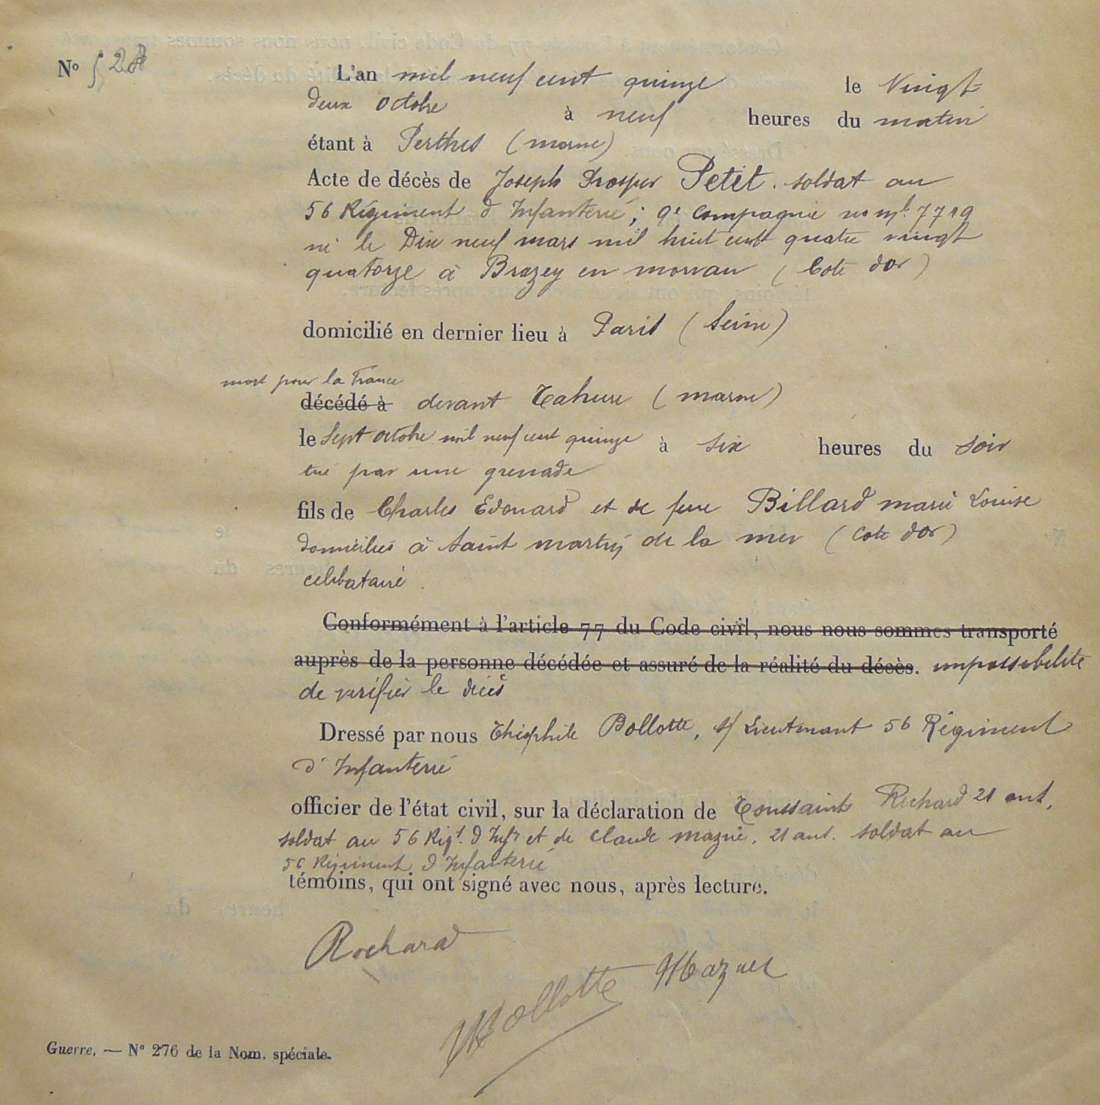 N° 28
L'an mil neuf cent quinze le Vingt
deux octobre à neuf heures du matin
étant à Perthes (marne)
Acte de décès de Joseph Prosper Petit. soldat au
56 Régiment d'Infanterie; 9e Compagnie no ml. 7719
né le Dix neuf mars mil huit cent quatre vingt
quatorze à Brazey en morvan (Cote d'or)
domicilié en dernier lieu à Paris (Seine)
mort pour la France
décédé à devant Tahure (marne)
le Sept octobre mil neuf cent quinze à six heures du soir
tué par une grenade
fils de Charles Edouard et de feue Billard marie Louise
domiciliés à Saint martin de la mer (Cote d'or)
célibataire.
Conformément à l'article 77 du Code civil, nous nous sommes transporté
auprès de la personne décédée et assuré de la réalité du décès. impossibilité
de vérifier le décès
Dressé par nous Théophile Bollotte, s/ Lieutenant 56 Régiment
d'Infanterie
officier de l'état civil, sur la déclaration de Toussaint Richard 21 ans,
soldat au 56 Rigt. d'Infie et de Claude mazué. 21 ans. soldat au
56 Régiment d'Infanterie
témoins, qui ont signé avec nous, après lecture.
Rochard
Bollotte Mazuet
Guerre. — N° 276 de la Nom. spéciale.